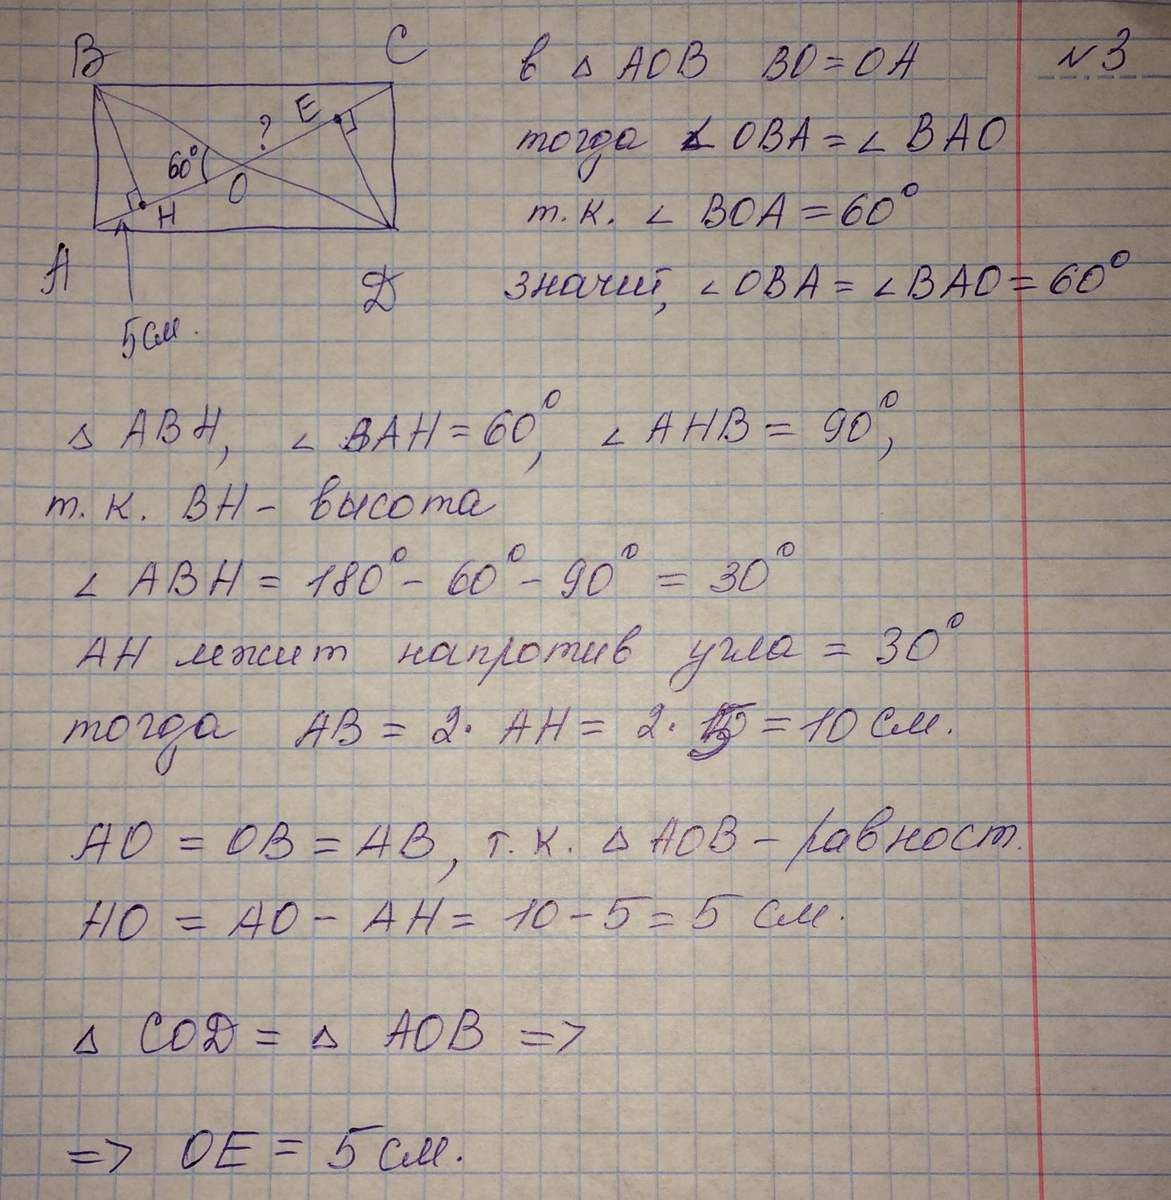 B
C
E
?
60°
O
H
A
D
5 см.
N 3
в △ AOB BO = OA
тогда ∠ OBA = ∠ BAO
т.к. ∠ BOA = 60°
значит, ∠ OBA = ∠ BAO = 60°
△ ABH, ∠ BAH = 60°, ∠ AHB = 90°,
т.к. BH - высота
∠ ABH = 180° - 60° - 90° = 30°
AH лежит напротив угла = 30°
тогда AB = 2 · AH = 2 · 5 = 10 см.
AO = OB = AB, т.к. △ AOB - равност.
HO = AO - AH = 10 - 5 = 5 см.
△ COD = △ AOB =>
=> OE = 5 см.